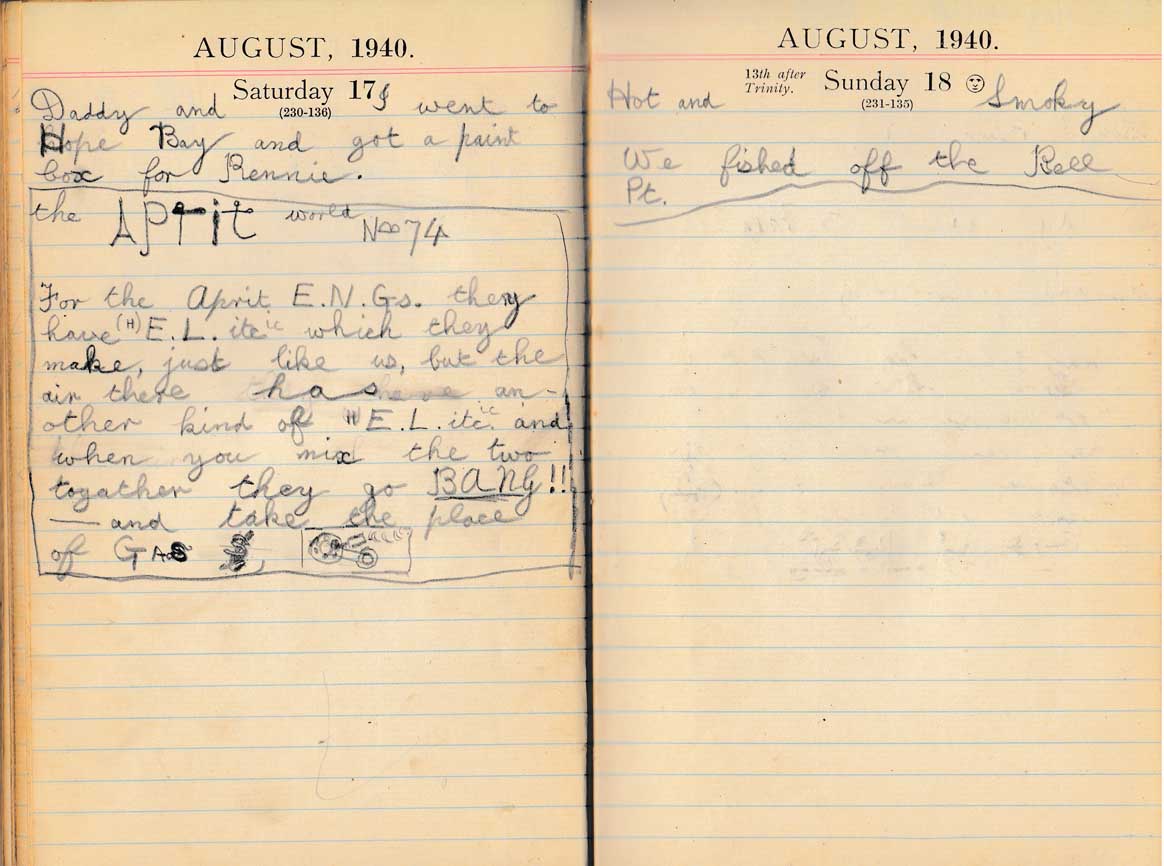 AUGUST, 1940.
Saturday 17
(230-136)
Daddy and I went to
Hope Bay and got a paint
box for Rennie.
the APrit world No 74
For the Aprit E.N.Gs. they
have (H) E.L. itc ic which they
make, just like us, but the
air there has an-
other kind of H E.L. itc ic and
when you mix the two
togather they go BANG!!
— and take the place
of GAS
AUGUST, 1940.
13th after
Trinity.
Sunday 18
(231-135)
Hot and Smoky
We fished off the
Pt.